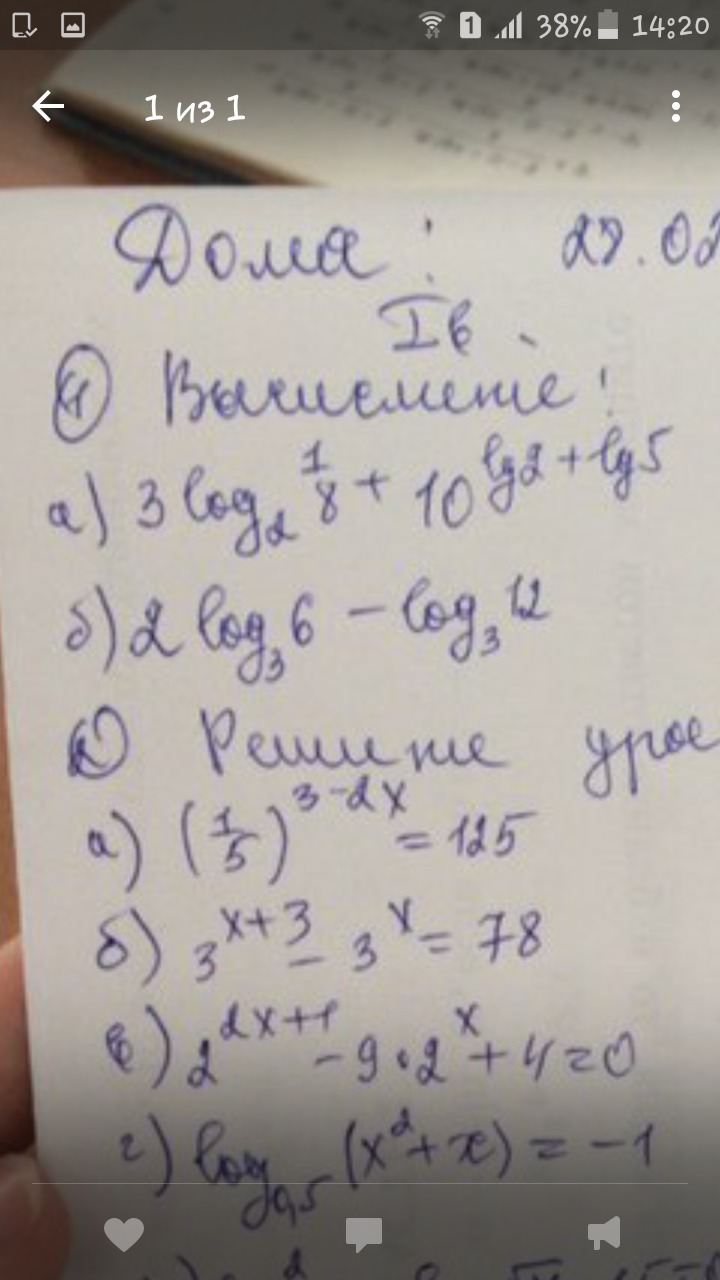 1 38% 14:20
1 из 1
Дома: 27.02
Iв.
① Вычислите:
а) 3 log₂ 1/8 + 10^(lg2 + lg5)
б) 2 log₃ 6 − log₃ 12
② Решите урав
а) (1/5)^(3-2x) = 125
б) 3^(x+3) − 3^x = 78
в) 2^(2x+1) − 9·2^x + 4 = 0
г) log₀,₅ (x² + x) = −1